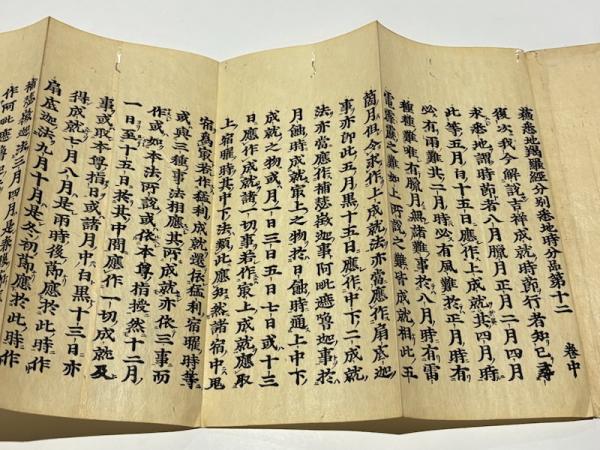 蘇悉地羯羅經分別悉地時分品第十二 卷中
復次我今解說吉祥成就時節行者知已尋
求悉地謂時節者八月臘月正月二月四月
此等五月白十五日應作上成就其四月時
必有雨難其二月時必有風難於正月時有
種種難唯有臘月無諸難事於八月時有雷
電霹靂之難如上所說之難皆成就相此五
箇月但令求作上成就法亦當應作扇底迦
事亦即此五月黑十五日應作中下二成就
法亦當應作補莎徵迦事阿毗遮嚕迦事於
月蝕時成就最上之物於日蝕時通上中下
成就之物或月一日三日五日七日或十三
日應作成就一切事若作最上成就應取
上宿曜時其中下法類此應知然諸宿中鬼
宿為最若作猛利成就還依猛利宿曜時等
或與三種事法相應其所成就亦依三事而
作或如本法所說或依本尊指授然十二月
一日至十五日於其中間應作一切成就及
事或取本尊指日或諸月中白黑十三日亦
得成就七月八月是雨時後節應於此時作
扇底迦法九月十月是冬初節應於此時作
補莎徵迦法三月四月是春後節
作阿毗遮嚕